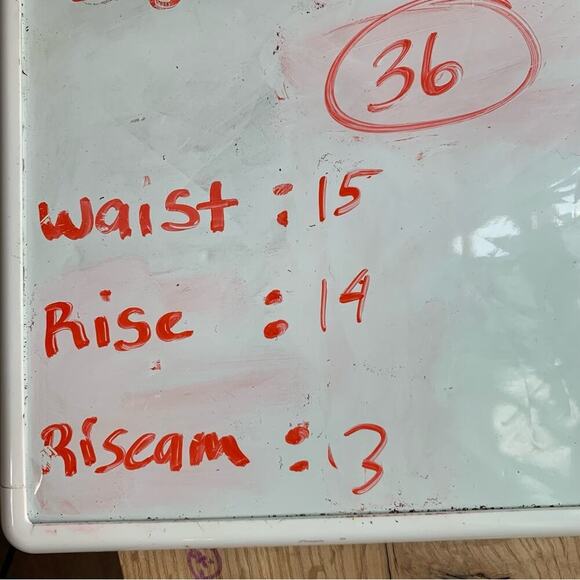 36
Waist : 15
Rise : 14
Riseam : 13